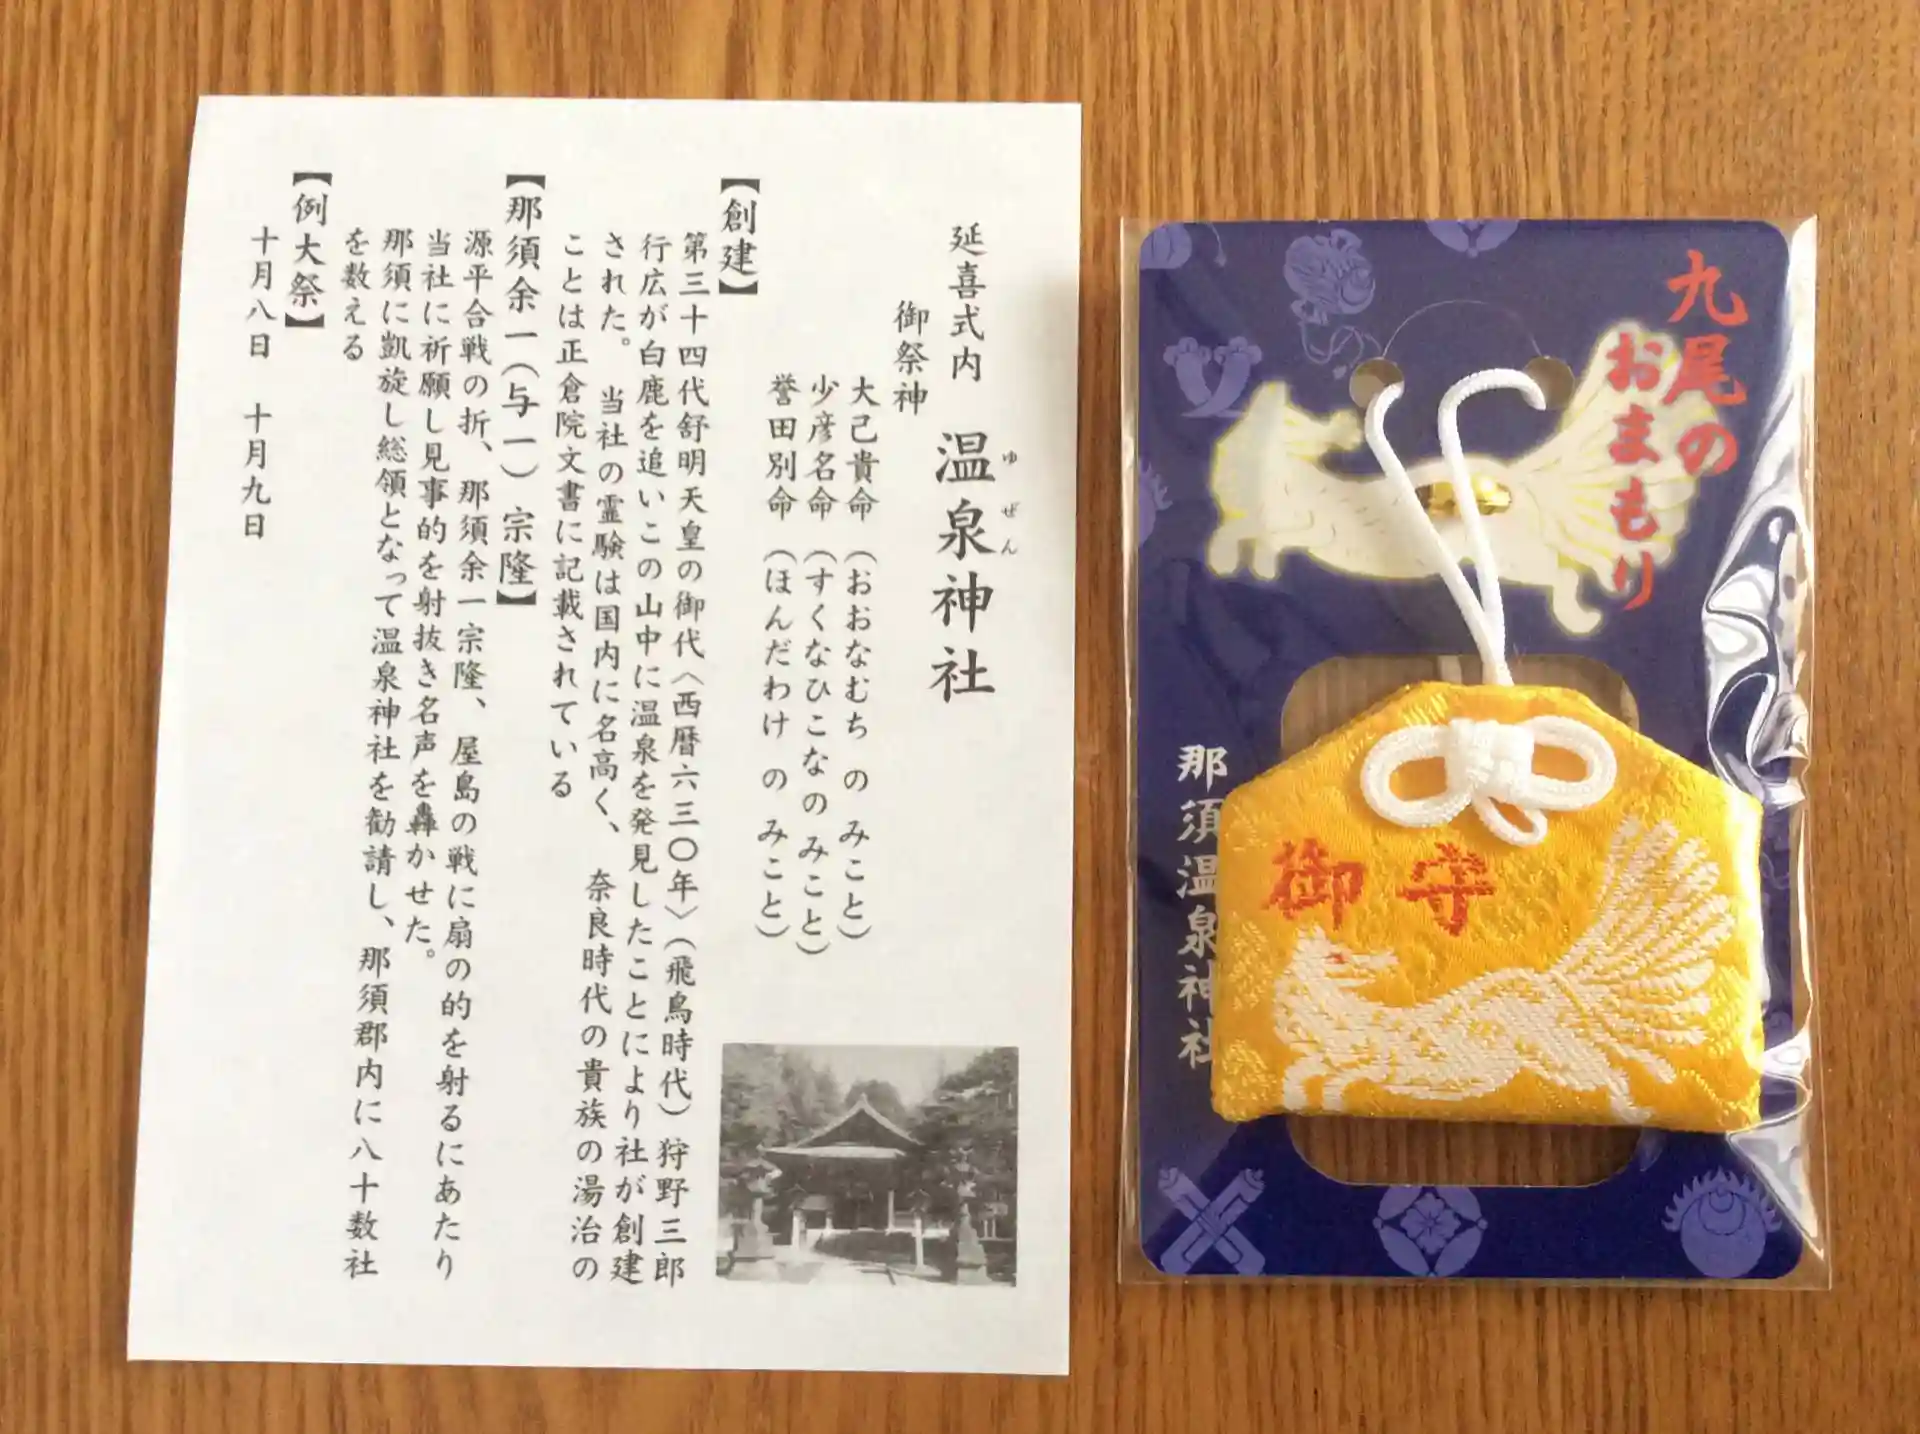 延喜式内 温泉神社
ゆぜん
御祭神
大己貴命（おおなむち の みこと）
少彦名命（すくなひこなの みこと）
誉田別命（ほんだわけ の みこと）
【創建】
第三十四代舒明天皇の御代〈西暦六三〇年〉（飛鳥時代）狩野三郎
行広が白鹿を追いこの山中に温泉を発見したことにより社が創建
された。 当社の霊験は国内に名高く、 奈良時代の貴族の湯治の
ことは正倉院文書に記載されている
【那須余一（与一）宗隆】
源平合戦の折、那須余一宗隆、屋島の戦に扇の的を射るにあたり
当社に祈願し見事的を射抜き名声を轟かせた。
那須に凱旋し総領となって温泉神社を勧請し、那須郡内に八十数社
を数える
【例大祭】
十月八日 十月九日
九尾の
おまもり
那須温泉神社
御守